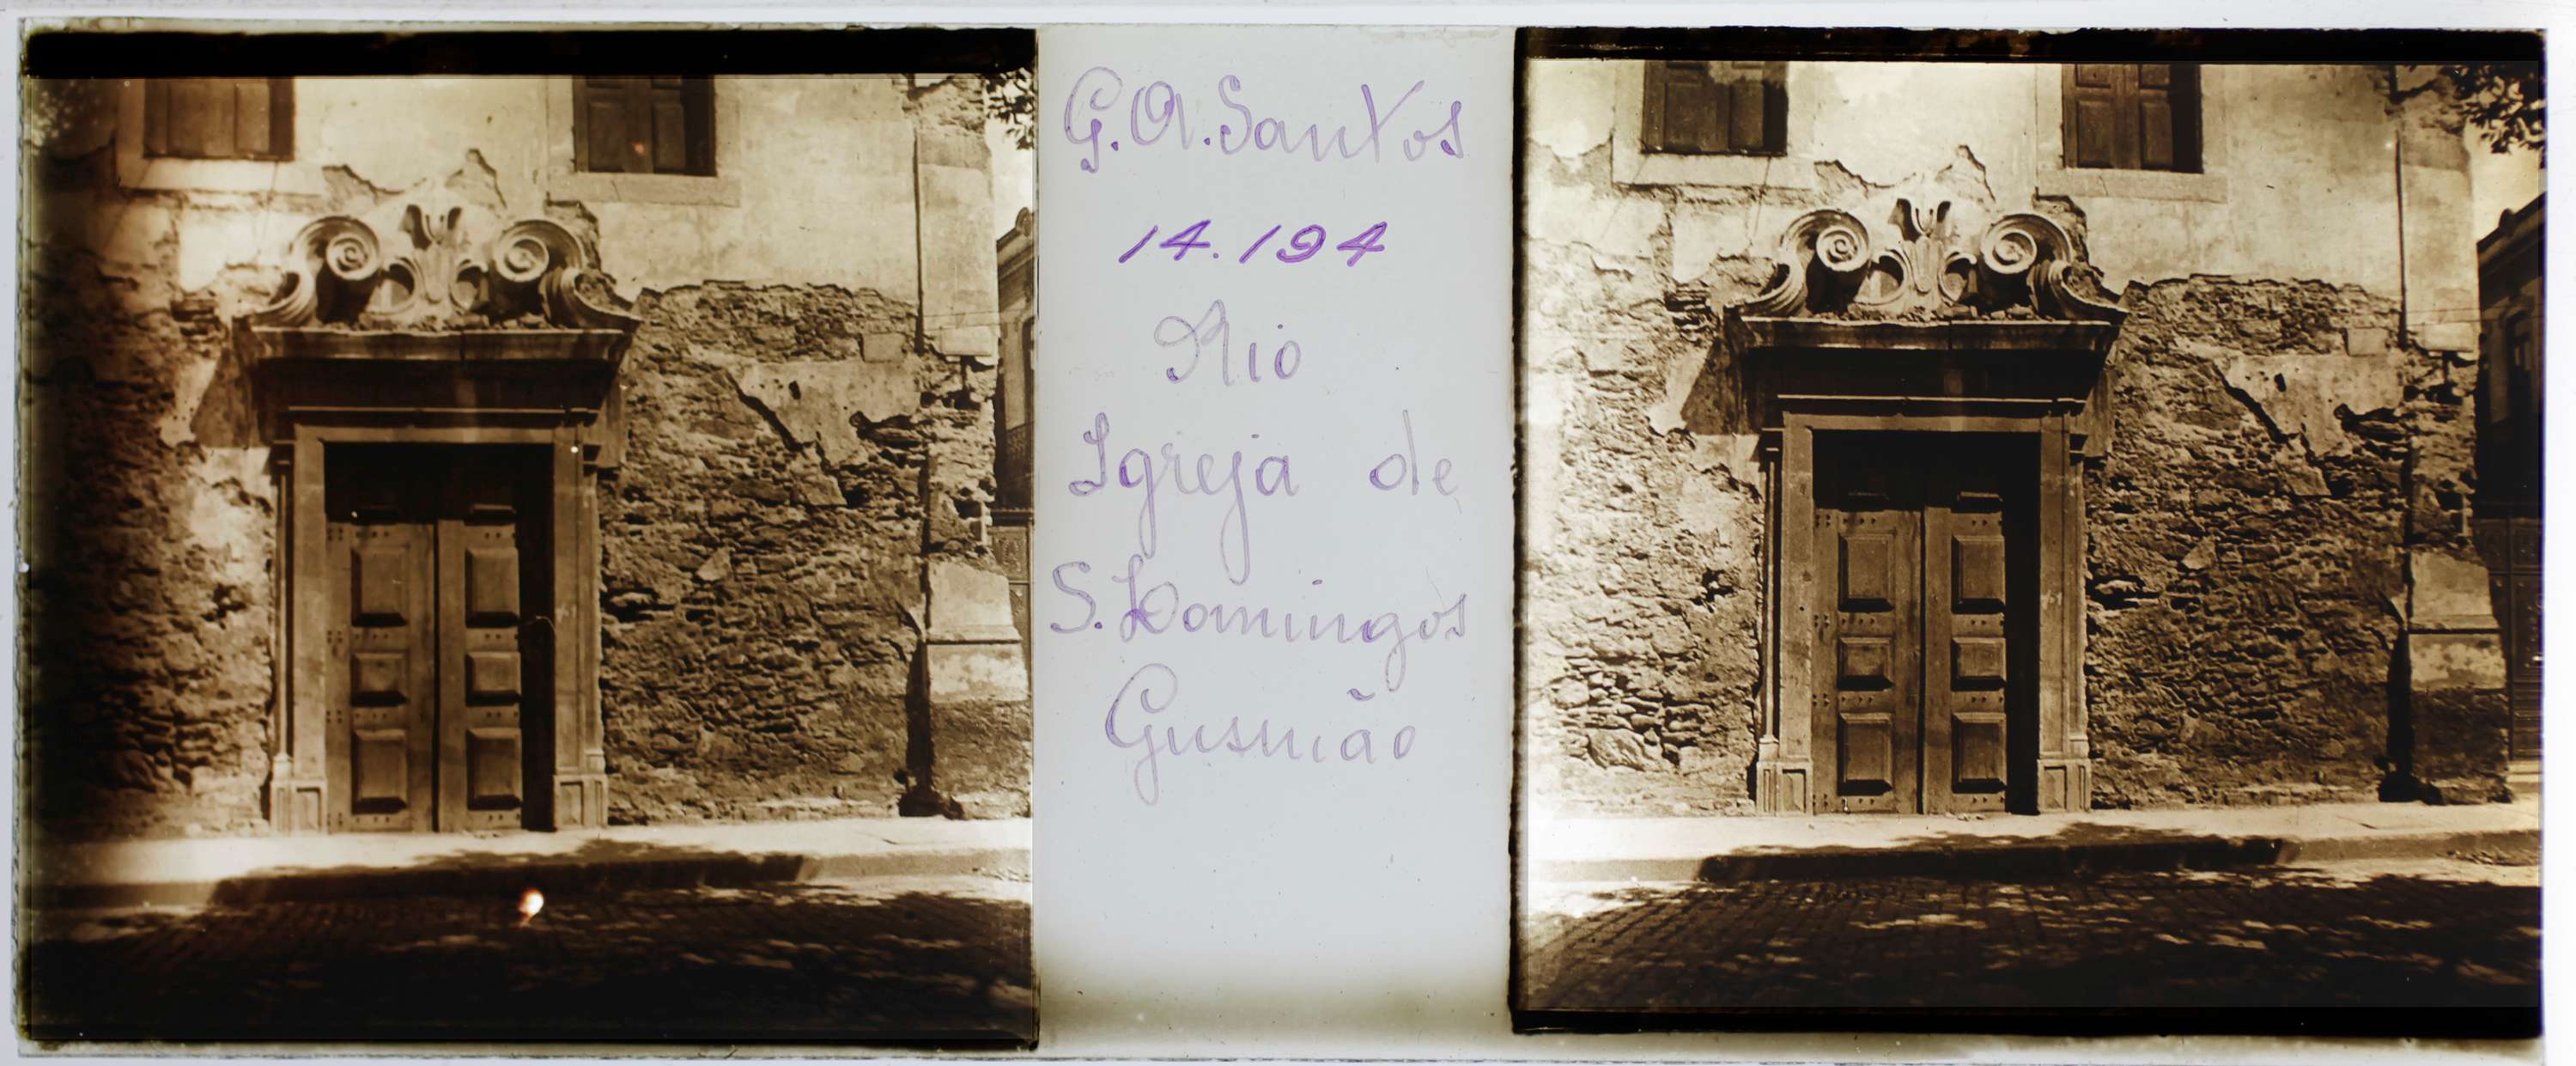 G. A. Santos
14.194
Rio
Igreja de
S. Domingos
Gusmão